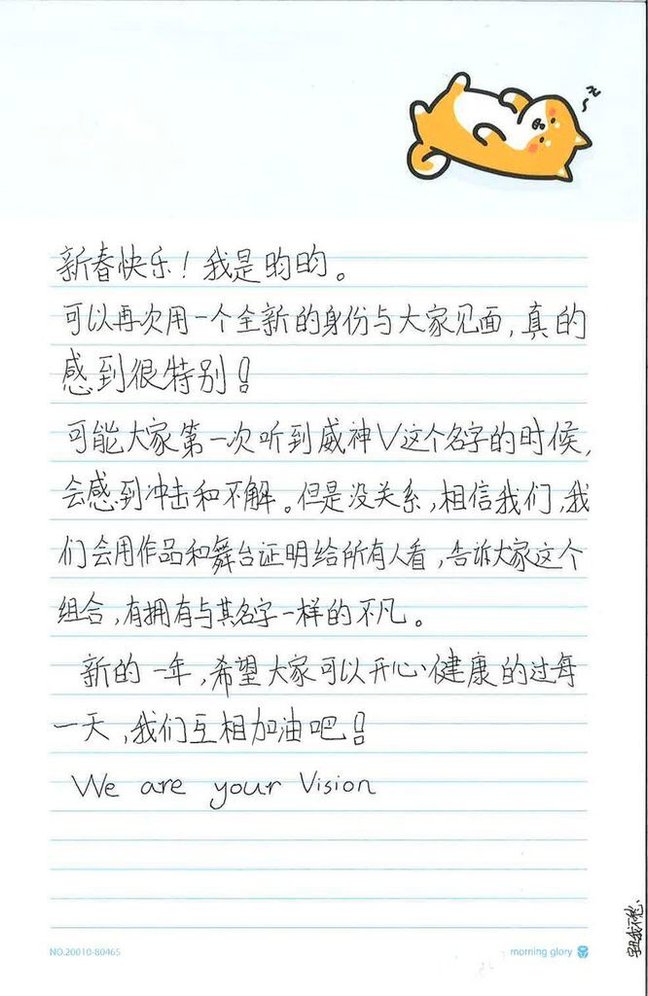 新春快乐！我是昀昀。
可以再次用一个全新的身份与大家见面，真的
感到很特别！
可能大家第一次听到威神V这个名字的时候，
会感到冲击和不解。但是没关系，相信我们，我
们会用作品和舞台证明给所有人看，告诉大家这个
组合，有拥有与其名字一样的不凡。
新的一年，希望大家可以开心健康的过每
一天，我们互相加油吧！
We are your Vision
NO.20010-80465
morning glory